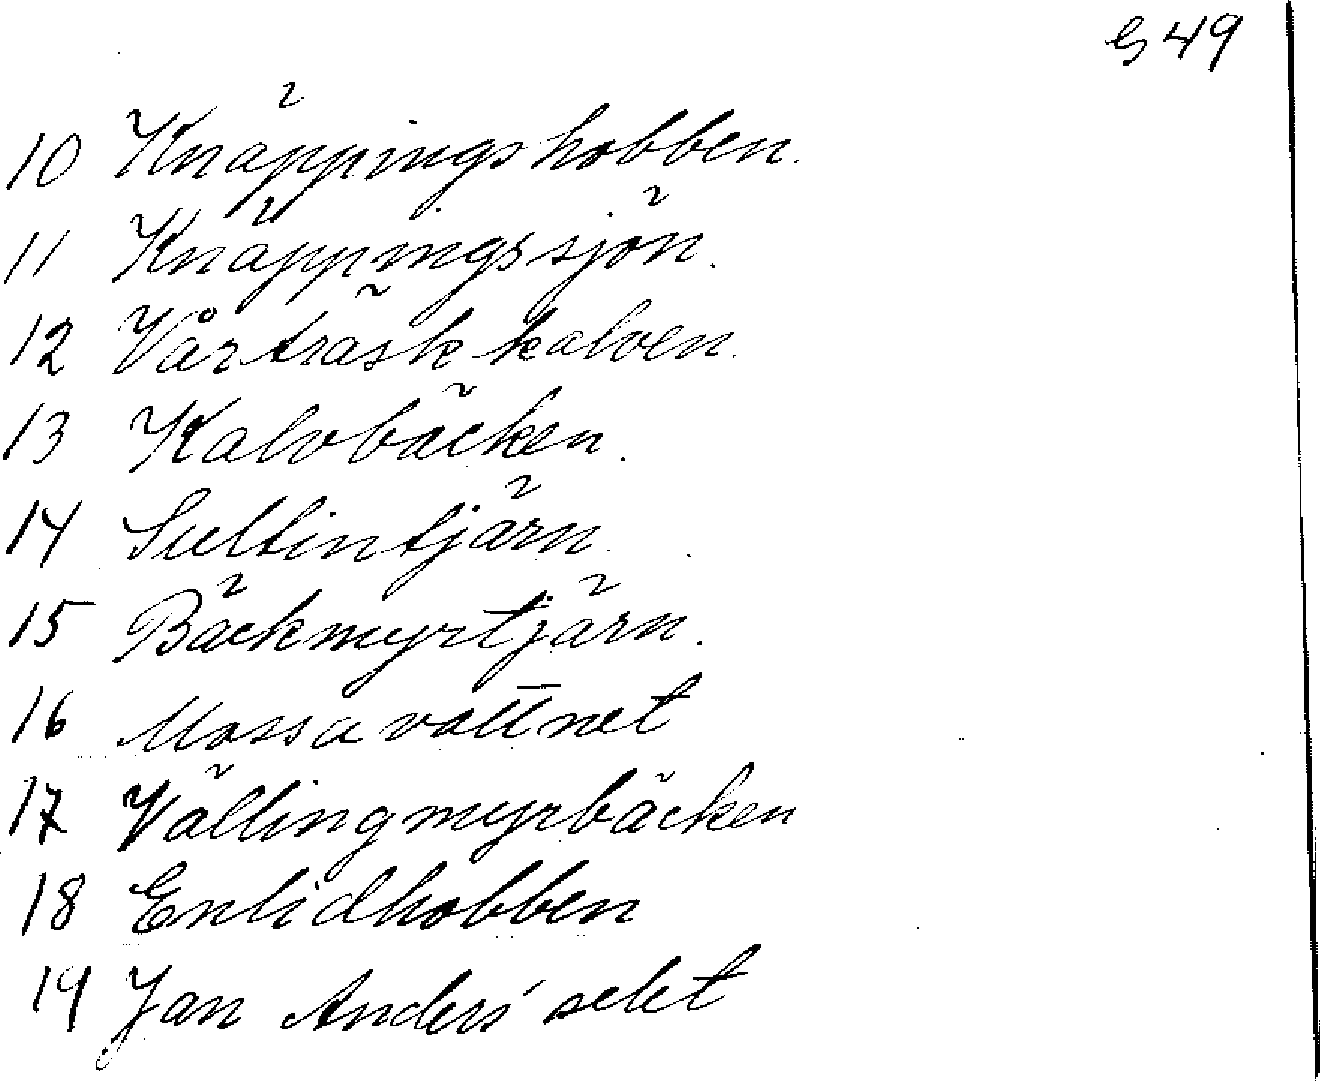 G 49
10 Knäppingshobben.
11 Knäppingssjön.
12 Vårträskkalven.
13 Kalvbäcken.
14 Sultintjärn.
15 Bäckmyrtjärn.
16 Mossavattnet
17 Vällingmyrbäcken
18 Enlidhobben
19 Jan Anders' selet